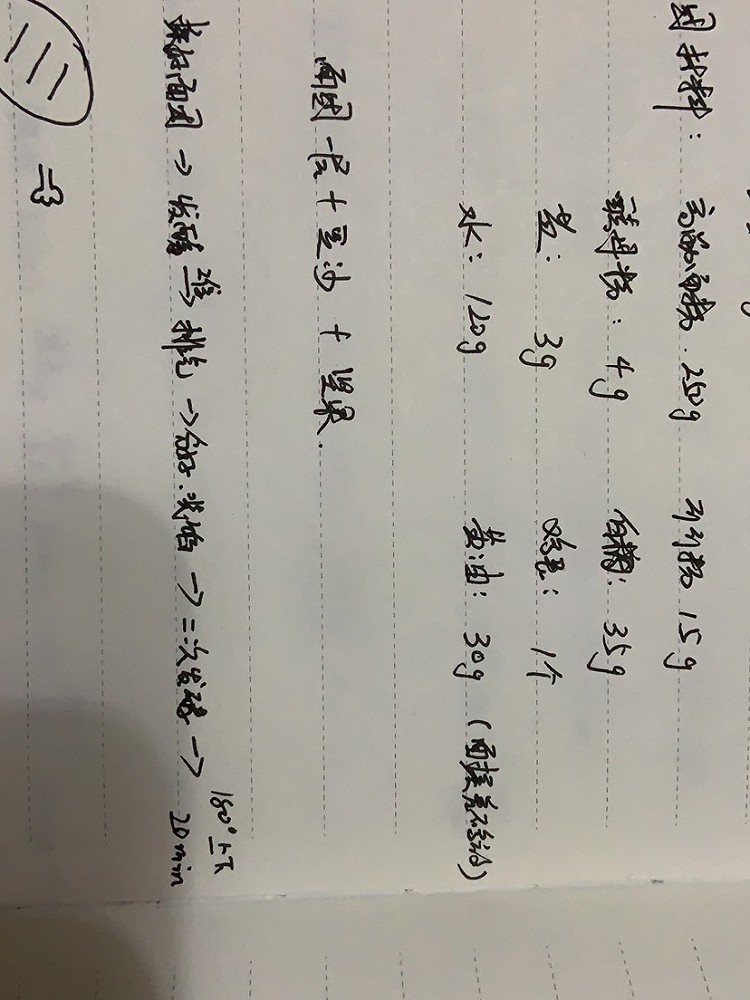 团材料:
高筋面粉 250g 可可粉 15g
酵母粉: 4g 白糖: 35g
盐: 3g 鸡蛋: 1个
水: 120g 黄油: 30g (面揉差不多放)
面团一层 + 豆沙 + 坚果.
揉好面团 → 发酵 2倍 排气 → 分好. → 二次发酵 → 180° 上下 20min